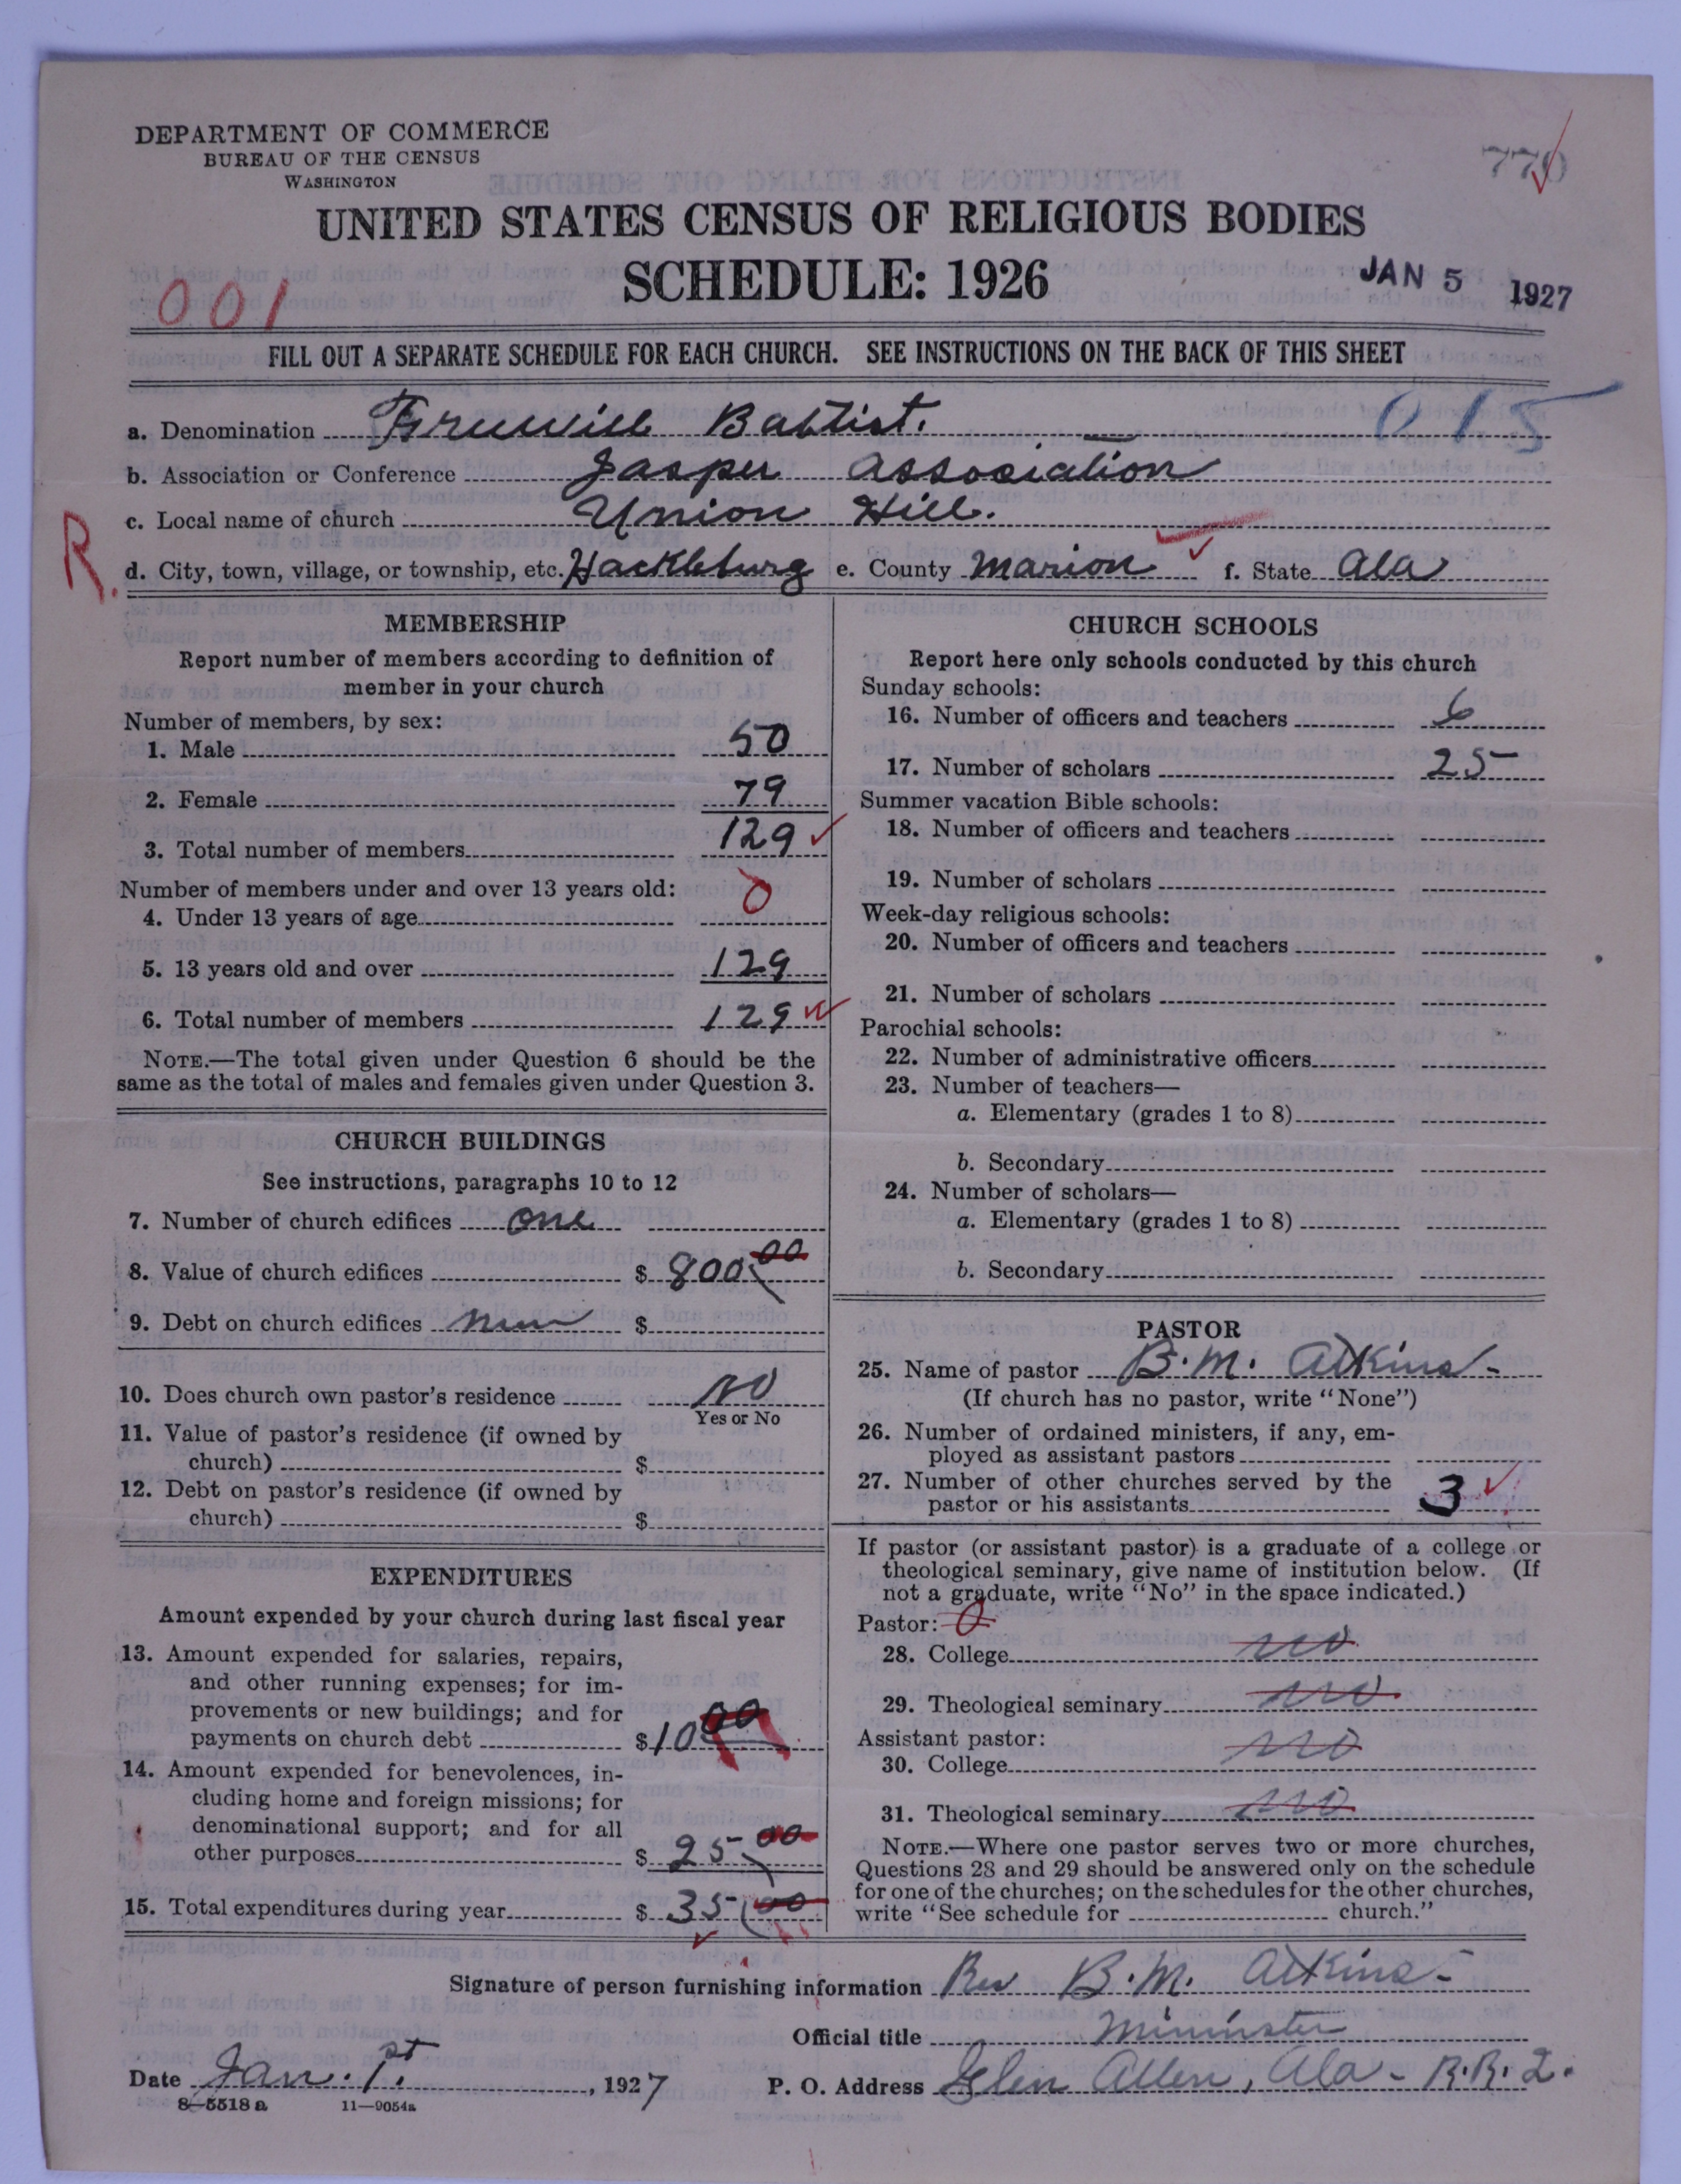 DEPARTMENT OF COMMERCE
BUREAU OF THE CENSUS
WASHINGTON
770
UNITED STATES CENSUS OF RELIGIOUS BODIES
SCHEDULE: 1926
JAN 5 1927
001
FILL OUT A SEPARATE SCHEDULE FOR EACH CHURCH. SEE INSTRUCTIONS ON THE BACK OF THIS SHEET
015
a. Denomination Freewill Baptist.
b. Association or Conference Jasper Association
c. Local name of church Union Hill.
R.
d. City, town, village, or township, etc. Hackleburg e. County Marion f. State Ala
MEMBERSHIP
Report number of members according to definition of
member in your church
Number of members, by sex:
1. Male 50
2. Female 79
3. Total number of members 129
Number of members under and over 13 years old:
4. Under 13 years of age 0
5. 13 years old and over 129
6. Total number of members 129
NOTE.—The total given under Question 6 should be the
same as the total of males and females given under Question 3.
CHURCH BUILDINGS
See instructions, paragraphs 10 to 12
7. Number of church edifices one
8. Value of church edifices $ 800.00
9. Debt on church edifices $
10. Does church own pastor's residence NO
Yes or No
11. Value of pastor's residence (if owned by
church) $
12. Debt on pastor's residence (if owned by
church) $
EXPENDITURES
Amount expended by your church during last fiscal year
13. Amount expended for salaries, repairs,
and other running expenses; for im-
provements or new buildings; and for
payments on church debt $ 10 00
14. Amount expended for benevolences, in-
cluding home and foreign missions; for
denominational support; and for all
other purposes $ 25 00
15. Total expenditures during year $ 35 00
CHURCH SCHOOLS
Report here only schools conducted by this church
Sunday schools:
16. Number of officers and teachers 6
17. Number of scholars 25
Summer vacation Bible schools:
18. Number of officers and teachers
19. Number of scholars
Week-day religious schools:
20. Number of officers and teachers
21. Number of scholars
Parochial schools:
22. Number of administrative officers
23. Number of teachers—
a. Elementary (grades 1 to 8)
b. Secondary
24. Number of scholars—
a. Elementary (grades 1 to 8)
b. Secondary
PASTOR
25. Name of pastor B. M. Atkins-
(If church has no pastor, write "None")
26. Number of ordained ministers, if any, em-
ployed as assistant pastors
27. Number of other churches served by the
pastor or his assistants 3
If pastor (or assistant pastor) is a graduate of a college or
theological seminary, give name of institution below. (If
not a graduate, write "No" in the space indicated.)
Pastor: 0
28. College no
29. Theological seminary no
Assistant pastor:
30. College no
31. Theological seminary no
NOTE.—Where one pastor serves two or more churches,
Questions 28 and 29 should be answered only on the schedule
for one of the churches; on the schedules for the other churches,
write "See schedule for church."
Signature of person furnishing information Rev B. M. Atkins-
Official title Mininster
Date Jan. 1st., 1927 P. O. Address Glen Allen, Ala- R.R. 2.
8-5518 a 11-9054a